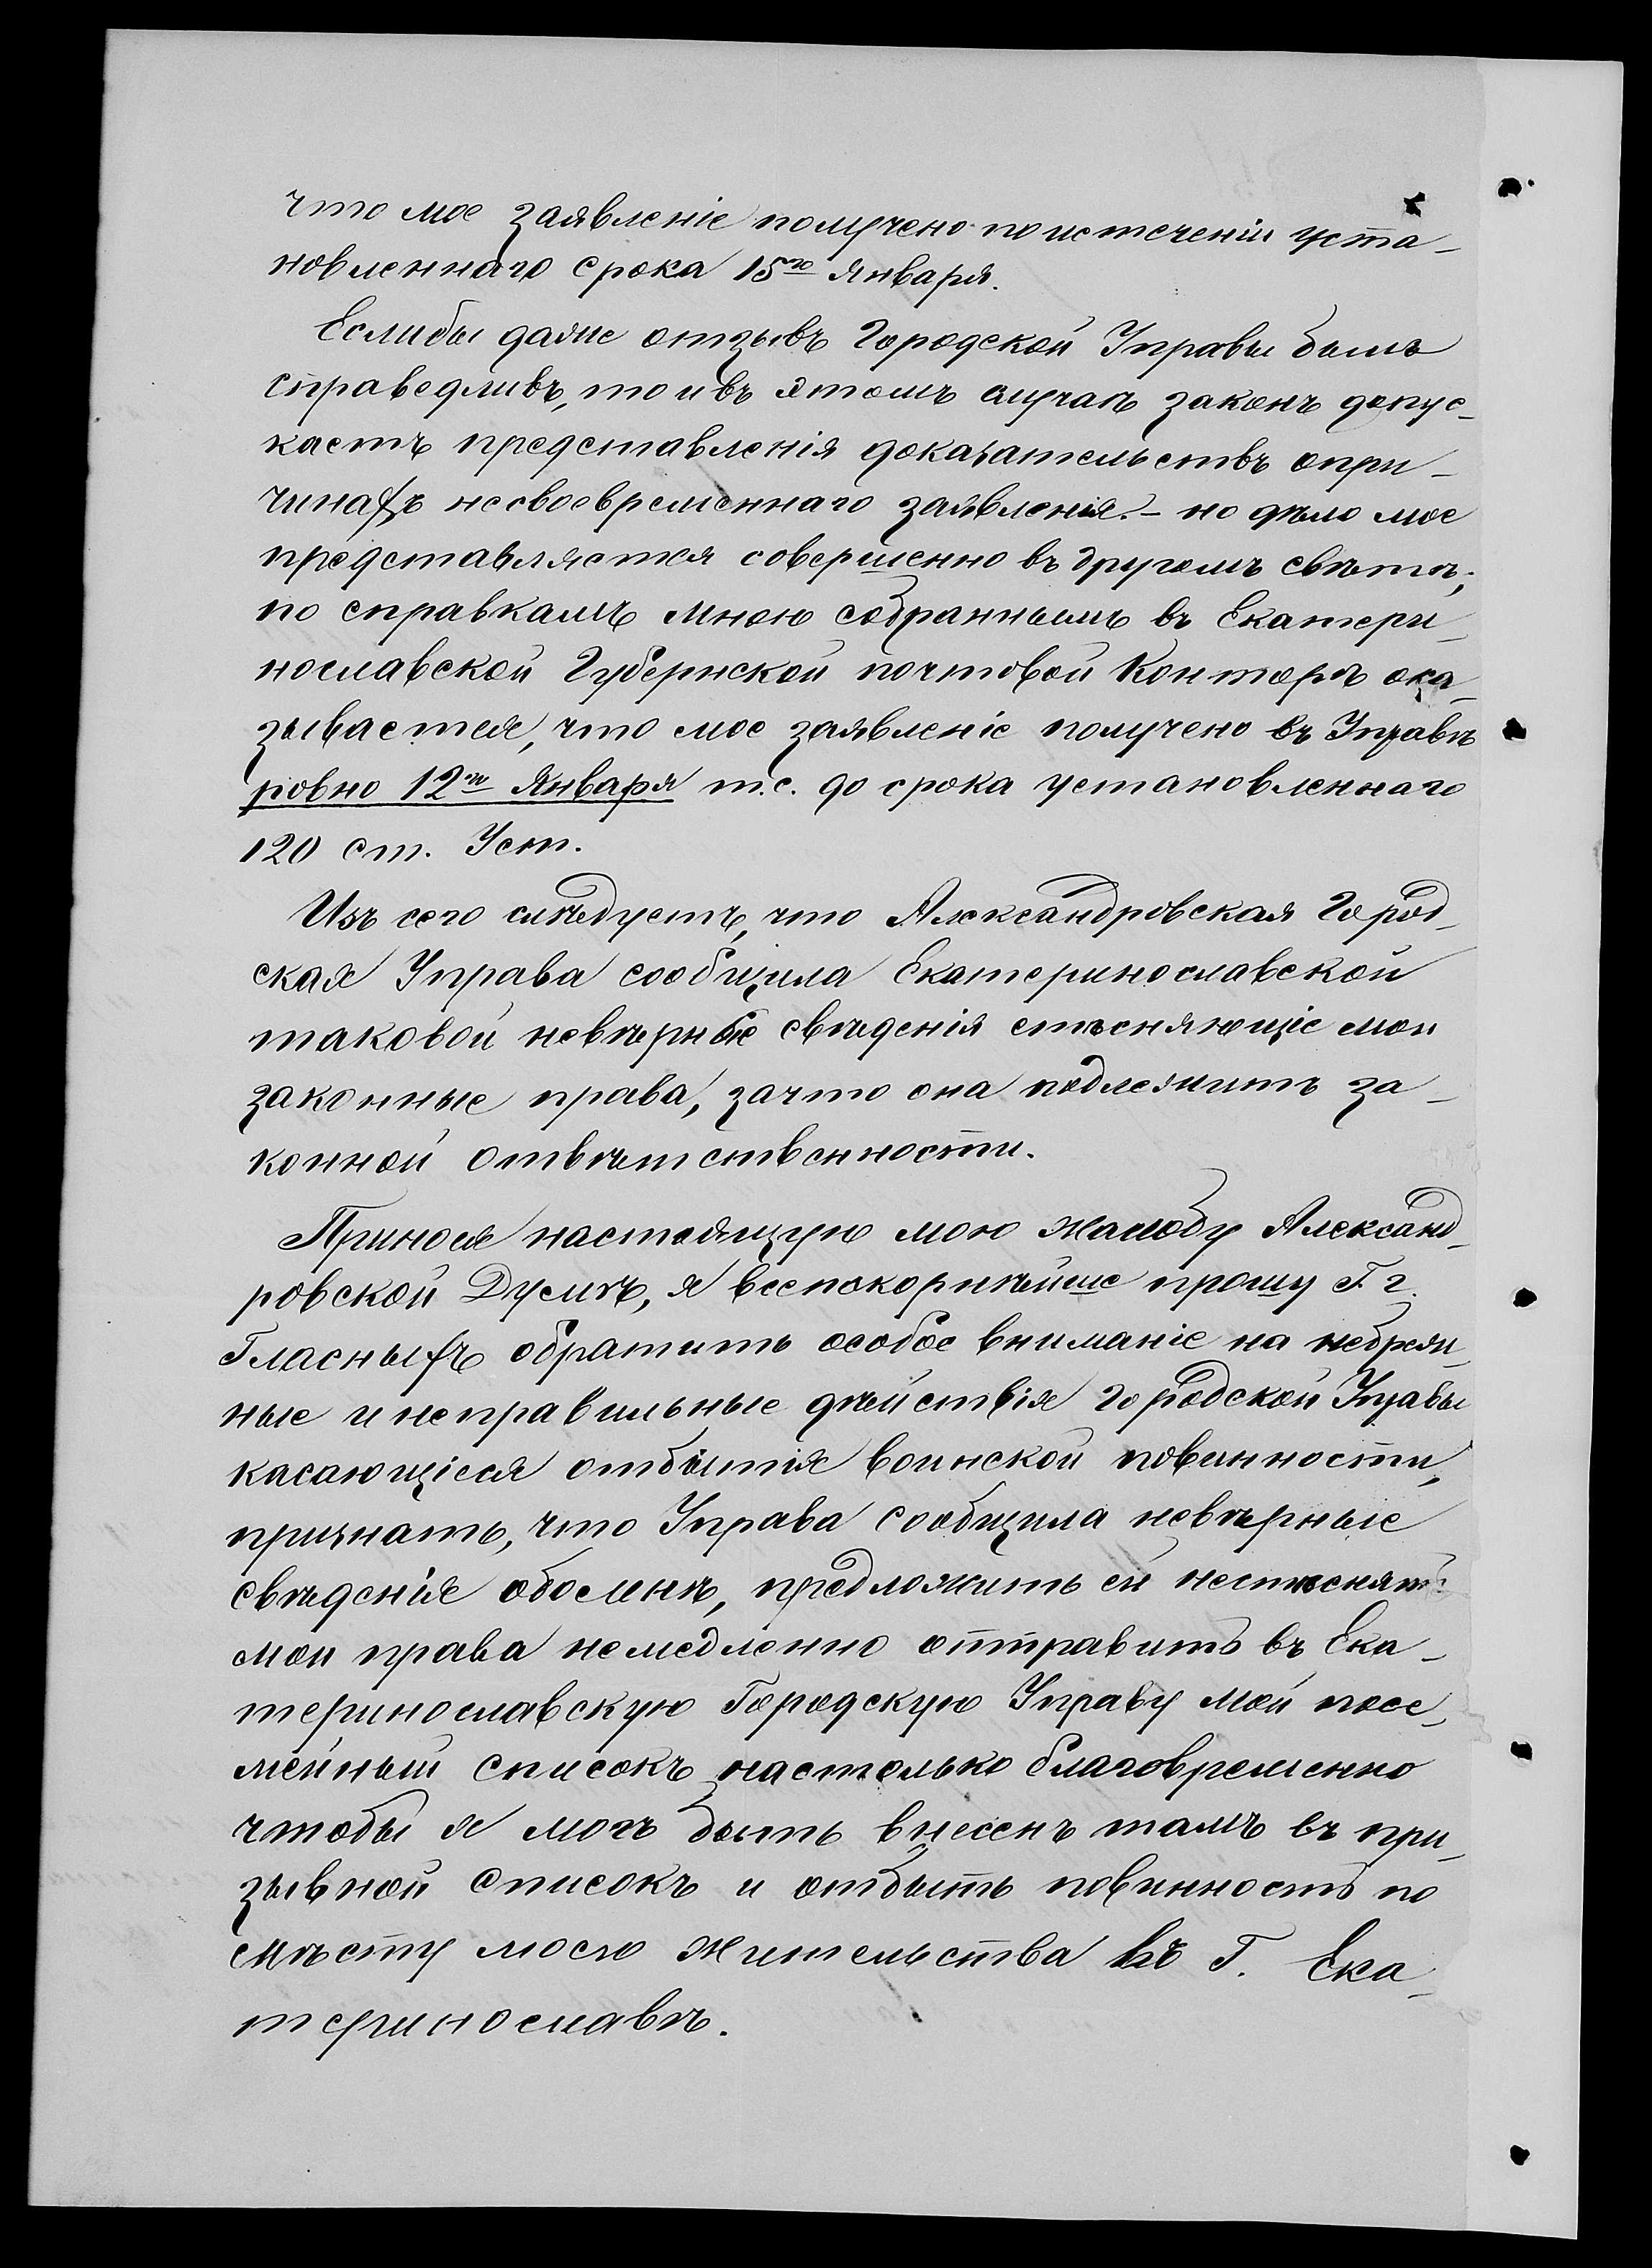 что мое заявленіе получено по истеченіи уста-
новленнаго срока 15го января.
Еслибы даже отзывъ Городской Управы былъ
справедливъ, то и въ этомъ случаѣ законъ допус-
каетъ представленія доказательствъ опри-
чинахъ несвоевременнаго заявленія. - но дѣло мое
представляется совершенно въ другомъ свѣтѣ;
по справкамъ мною собраннымъ въ Екатери-
нославской Губернской почтовой Конторѣ ока-
зывается, что мое заявленіе получено въ Управѣ
ровно 12го Января т.е. до срока установленнаго
120 ст. Уст.
Изъ сего слѣдуетъ, что Александровская Город-
ская Управа сообщила Екатеринославской
таковой невѣрные свѣденія стѣсняющіе мои
законные права, зачто она подлежитъ за-
конной отвѣтственности.
Принося настоящую мою жалобу Александ-
ровской Думѣ, я всепокорнѣйше прошу Г.г.
Гласныхъ обратить особое вниманіе на небреж-
ные и неправильные дѣйствія Городской Управы
касающіеся отбытія воинской повинности,
признать, что Управа сообщила невѣрные
свѣденія обомнѣ, предложить ей нестѣснять
мои права немедленно отправить въ Ека-
теринославскую Городскую Управу мой посе-
мейный списокъ настолько благовременно
чтобы я могъ быть внесенъ тамъ въ при-
зывной списокъ и отбыть повинность по
мѣсту моего жительства въ Г. Ека-
теринославѣ.